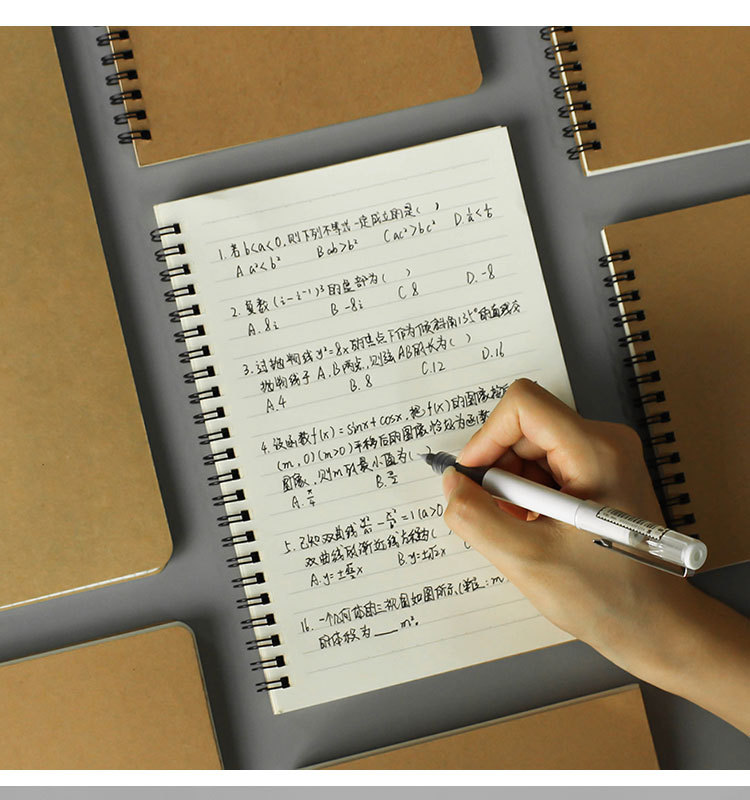 1. 若 b<a<0, 则下列不等式一定成立的是( )
A. a²<b² B ab>b² C ac²>bc² D. 1/a<1/b
2. 复数 (i-i⁻¹)³ 的虚部为( )
A. 8i B -8i C 8 D. -8
3. 过抛物线 y²=8x 的焦点下作为倾斜角135°的直线交
抛物线于 A.B 两点, 则弦AB的长为( )
A.4 B. 8 C.12 D.16
4. 设函数f(x)=sinx+cosx, 把f(x)的图像按
(m,0)(m>0)平移后的图像恰好为函数
图像, 则m的最小值为( )
A. π/4 B.
5. 已知双曲线 - =1(a>0
双曲线的渐近线方程为(
A. y=± x B. y=±√2x C
16. 一个几何体的三视图如图所示,(单位:m
的体积为 ___ m³.